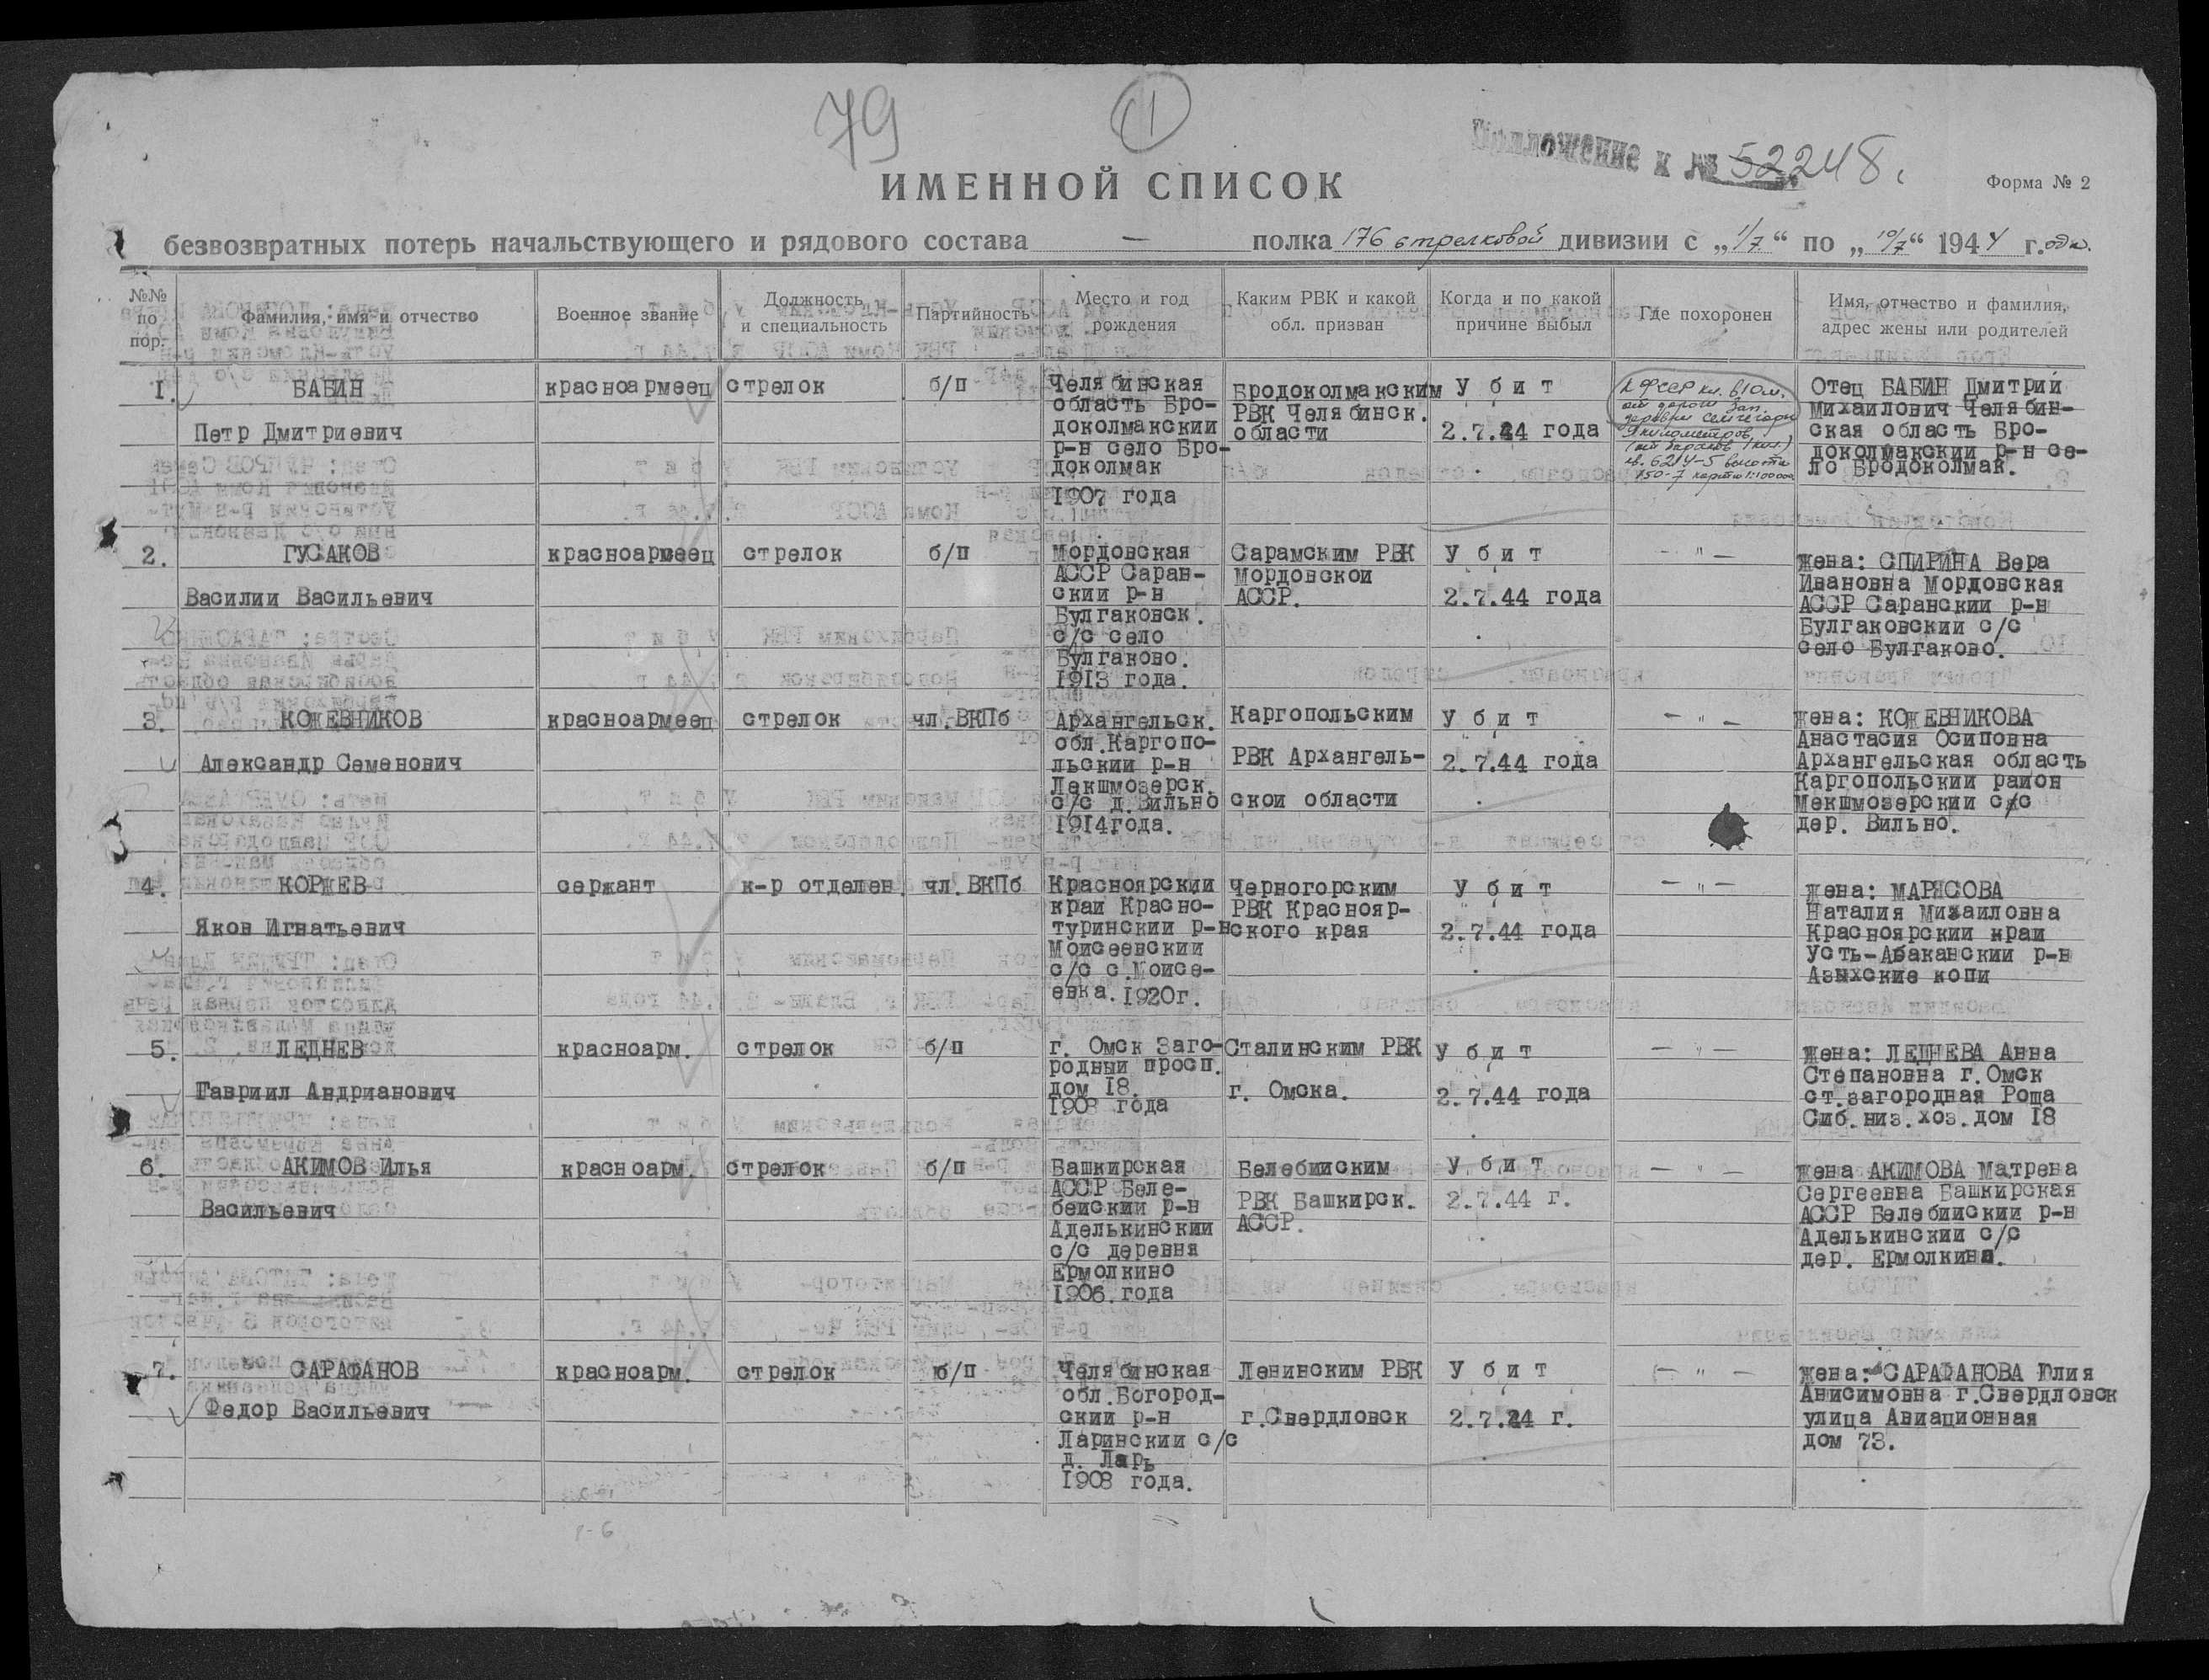 79
11
Приложение к № 52248.
ИМЕННОЙ СПИСОК
Форма № 2
безвозвратных потерь начальствующего и рядового состава — полка 176 стрелковой дивизии с „1/7“ по „10/7“ 1944 г.
№№ по пор.
Фамилия, имя и отчество
Военное звание
Должность и специальность
Партийность
Место и год рождения
Каким РВК и какой обл. призван
Когда и по какой причине выбыл
Где похоронен
Имя, отчество и фамилия, адрес жены или родителей
1.
БАБИН
Петр Дмитриевич
красноармеец
стрелок
б/п
Челябинская
область Бро-
доколмакскии
р-н село Бро-
доколмак
1907 года
Бродоколмакским
РВК Челябинск.
области
Убит
2.7.44 года
К ФССР
высоты
150-7 карта 1:100000
Отец БАБИН Дмитрий
Михаилович Челябин-
ская область Бро-
доколмакскии р-н се-
ло Бродоколмак.
2.
ГУСАКОВ
Василии Васильевич
красноармеец
стрелок
б/п
Мордовская
АССР Саран-
скии р-н
Булгаковск.
с/с село
Булгаково.
1913 года.
Сарамским РВК
Мордовскои
АССР.
Убит
2.7.44 года
— " —
жена: СПИРИНА Вера
Ивановна Мордовская
АССР Саранскии р-н
Булгаковскии с/с
село Булгаково.
3.
КОЖЕВНИКОВ
Александр Семенович
красноармеец
стрелок
чл.ВКПб
Архангельск.
обл.Каргопо-
льскии р-н
Лекшмозерск.
с/с д.Вильно
1914года.
Каргопольским
РВК Архангель-
скои области
Убит
2.7.44 года
— " —
жена: КОЖЕВНИКОВА
Анастасия Осиповна
Архангельская область
Каргопольскии раион
Мекшмозерскии с/с
дер. Вильно.
4.
КОРЖЕВ
Яков Игнатьевич
сержант
к-р отделен.
чл.ВКПб
Красноярскии
краи Красно-
туринскии р-н
Моисеевскии
с/с с.Моисе-
евка.1920г.
Черногорским
РВК Краснояр-
ского края
Убит
2.7.44 года
— " —
жена: МАРЯСОВА
Наталия Михаиловна
Красноярскии краи
Усть-Абаканскии р-н
Азыхские копи
5.
ЛЕДНЕВ
Гавриил Андрианович
красноарм.
стрелок
б/п
г. Омск Заго-
родныи просп.
дом 18.
1903 года
Сталинским РВК
г. Омска.
Убит
2.7.44 года
— " —
жена: ЛЕДНЕВА Анна
Степановна г.Омск
ст.загородная Роща
Сиб.низ.хоз.дом 18
6.
АКИМОВ Илья
Васильевич
красноарм.
стрелок
б/п
Башкирская
АССР Беле-
беискии р-н
Аделькинскии
с/с деревня
Ермолкино
1906.года
Белебииским
РВК Башкирск.
АССР.
Убит
2.7.44 г.
— " —
жена АКИМОВА Матрена
Сергеевна Башкирская
АССР Белебиискии р-н
Аделькинскии с/с
дер. Ермолкина.
7.
САРАФАНОВ
Федор Васильевич
красноарм.
стрелок
б/п
Челябинская
обл.Богород-
скии р-н
Ларинскии с/с
д. Ларь
1908 года.
Ленинским РВК
г.Свердловск
Убит
2.7.44 г.
— " —
жена: САРАФАНОВА Юлия
Анисимовна г.Свердловск
улица Авиационная
дом 73.